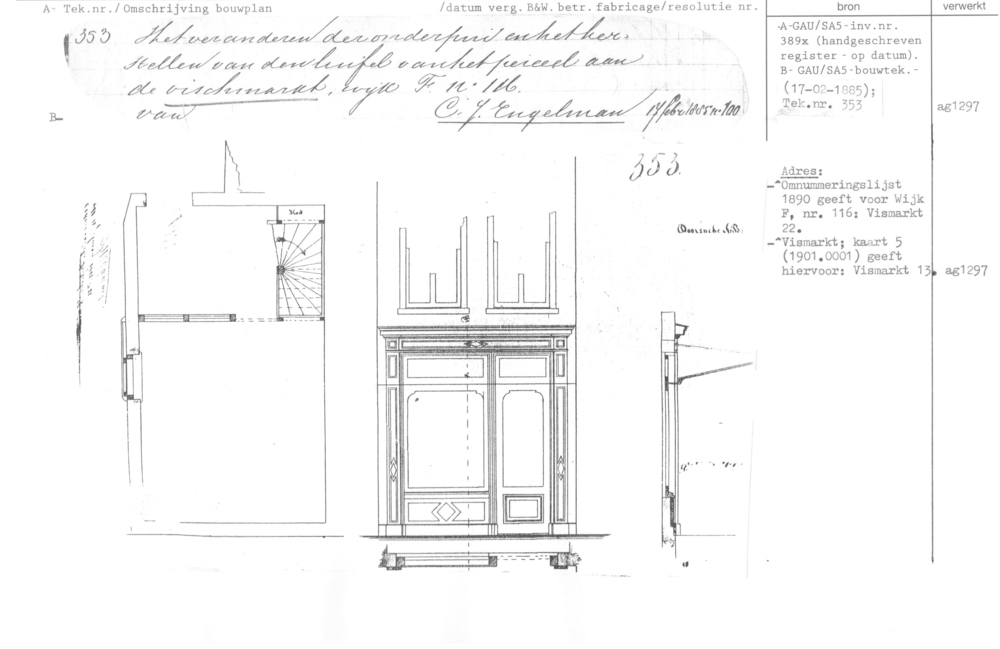 A- Tek.nr./Omschrijving bouwplan /datum verg.B&W.betr.fabricage/resolutie nr. bron verwerkt
353 Het veranderen der onderpui en het her-
stellen van den luifel van het perceel aan
de vischmarkt, wijk F. no. 116.
B- van C. J. Engelman 17 feb. 1885 n. 100
-A-GAU/SA5-inv.nr.
389x (handgeschreven
register - op datum).
B- GAU/SA5-bouwtek.-
(17-02-1885);
Tek.nr. 353 ag1297
353.
Adres:
-^Omnummeringslijst
1890 geeft voor Wijk
F, nr. 116: Vismarkt
22.
-^Vismarkt; kaart 5
(1901.0001) geeft
hiervoor: Vismarkt 13. ag1297
Doorsnede A.B: